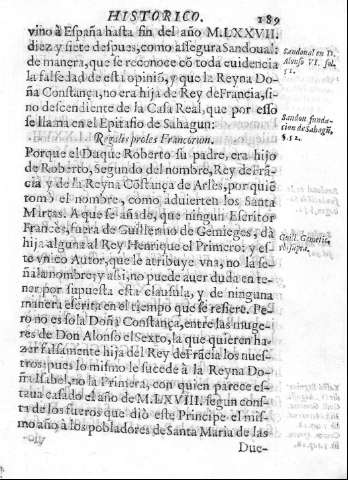 HISTORICO. 189
vino à España hasta fin del año M.LXXVII.
diez y siete despues, como assegura Sandoual:
de manera, que se reconoce cõ toda euidencia
la falsedad de esta opiniõ, y que la Reyna Do-
ña Constança, no era hija de Rey de Francia, si-
no descendiente de la Casa Real, que por esso
se llama en el Epitafio de Sahagun:
Regalis proles Francorum.
Porque el Duque Roberto su padre, era hijo
de Roberto, Segundo del nombre, Rey de Frã-
cia y de la Reyna Cõstança de Arles, por quiẽ
tomò el nombre, como aduierten los Santa
Martas. A que se añade, que ningun Escritor
Francès, fuera de Guillermo de Gemieges, dà
hija alguna al Rey Henrique el Primero: y es-
te vnico Autor, que le atribuye vna, no la se-
ñala nombre; y assi, no puede auer duda en te-
ner por supuesta esta clausula, y de ninguna
manera escrita en el tiempo que se refiere. Pe-
ro no es sola Doña Constança, entre las muge-
res de Don Alonso el Sexto, la que quieren ha-
zer falsamente hija del Rey de Frãcia los nues-
tros: pues lo mismo le sucede à la Reyna Do-
ña Isabel, no la Primera, con quien parece es-
taua casado el año de M.LXVIII. segun cons-
ta de los fueros que diò este Principe el mis-
mo año à los pobladores de Santa Maria de las
Due-
Sandoual en D.
Alonso VI. fol.
51.
Sandou. funda-
cion de Sahagũ,
§.52.
Guill. Gemetic.